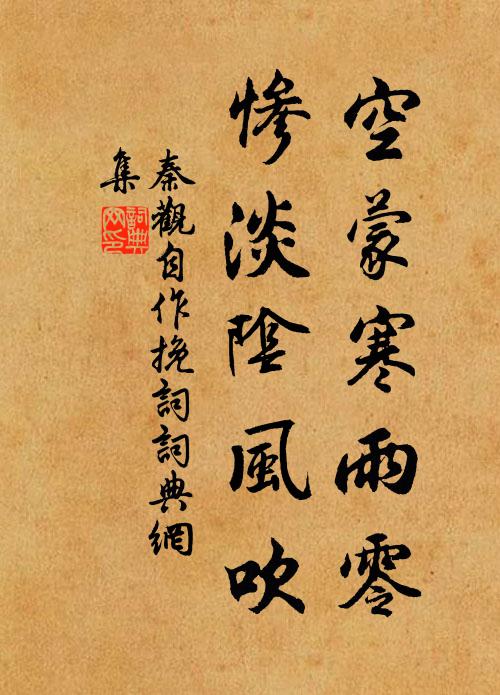 空蒙寒雨零
慘淡陰風吹
秦觀自作挽詞詞典網
集
詞典網印